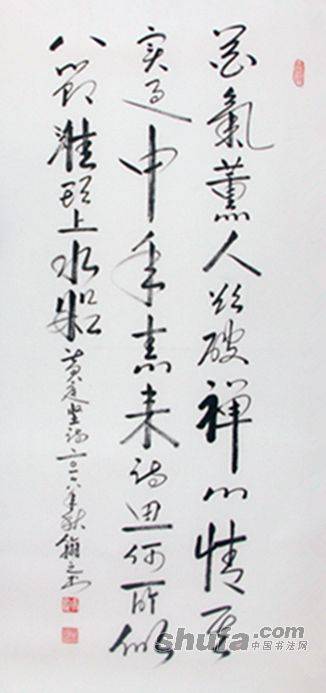 花氣薰人欲破禪心情其
实过中年春来诗思何所似
八節灘頭上水船
黄庭坚诗二〇一八年秋
shufa.com
中国书法网